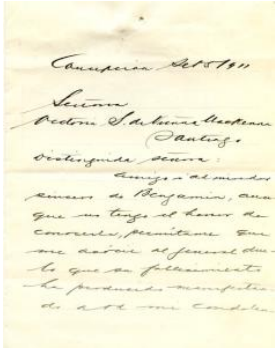 Concepcion Set 5/911
Señora
Victoria S. de Vicuña Mackenna
Santiago
Distinguida señora:
Amigo i admirador
sincero de Benjamin, aun
que no tengo el honor de
conocerla, permítame que
me asócie al jeneral due
lo que su fallecimiento
ha producido manifestan
do a Ud mis condolen